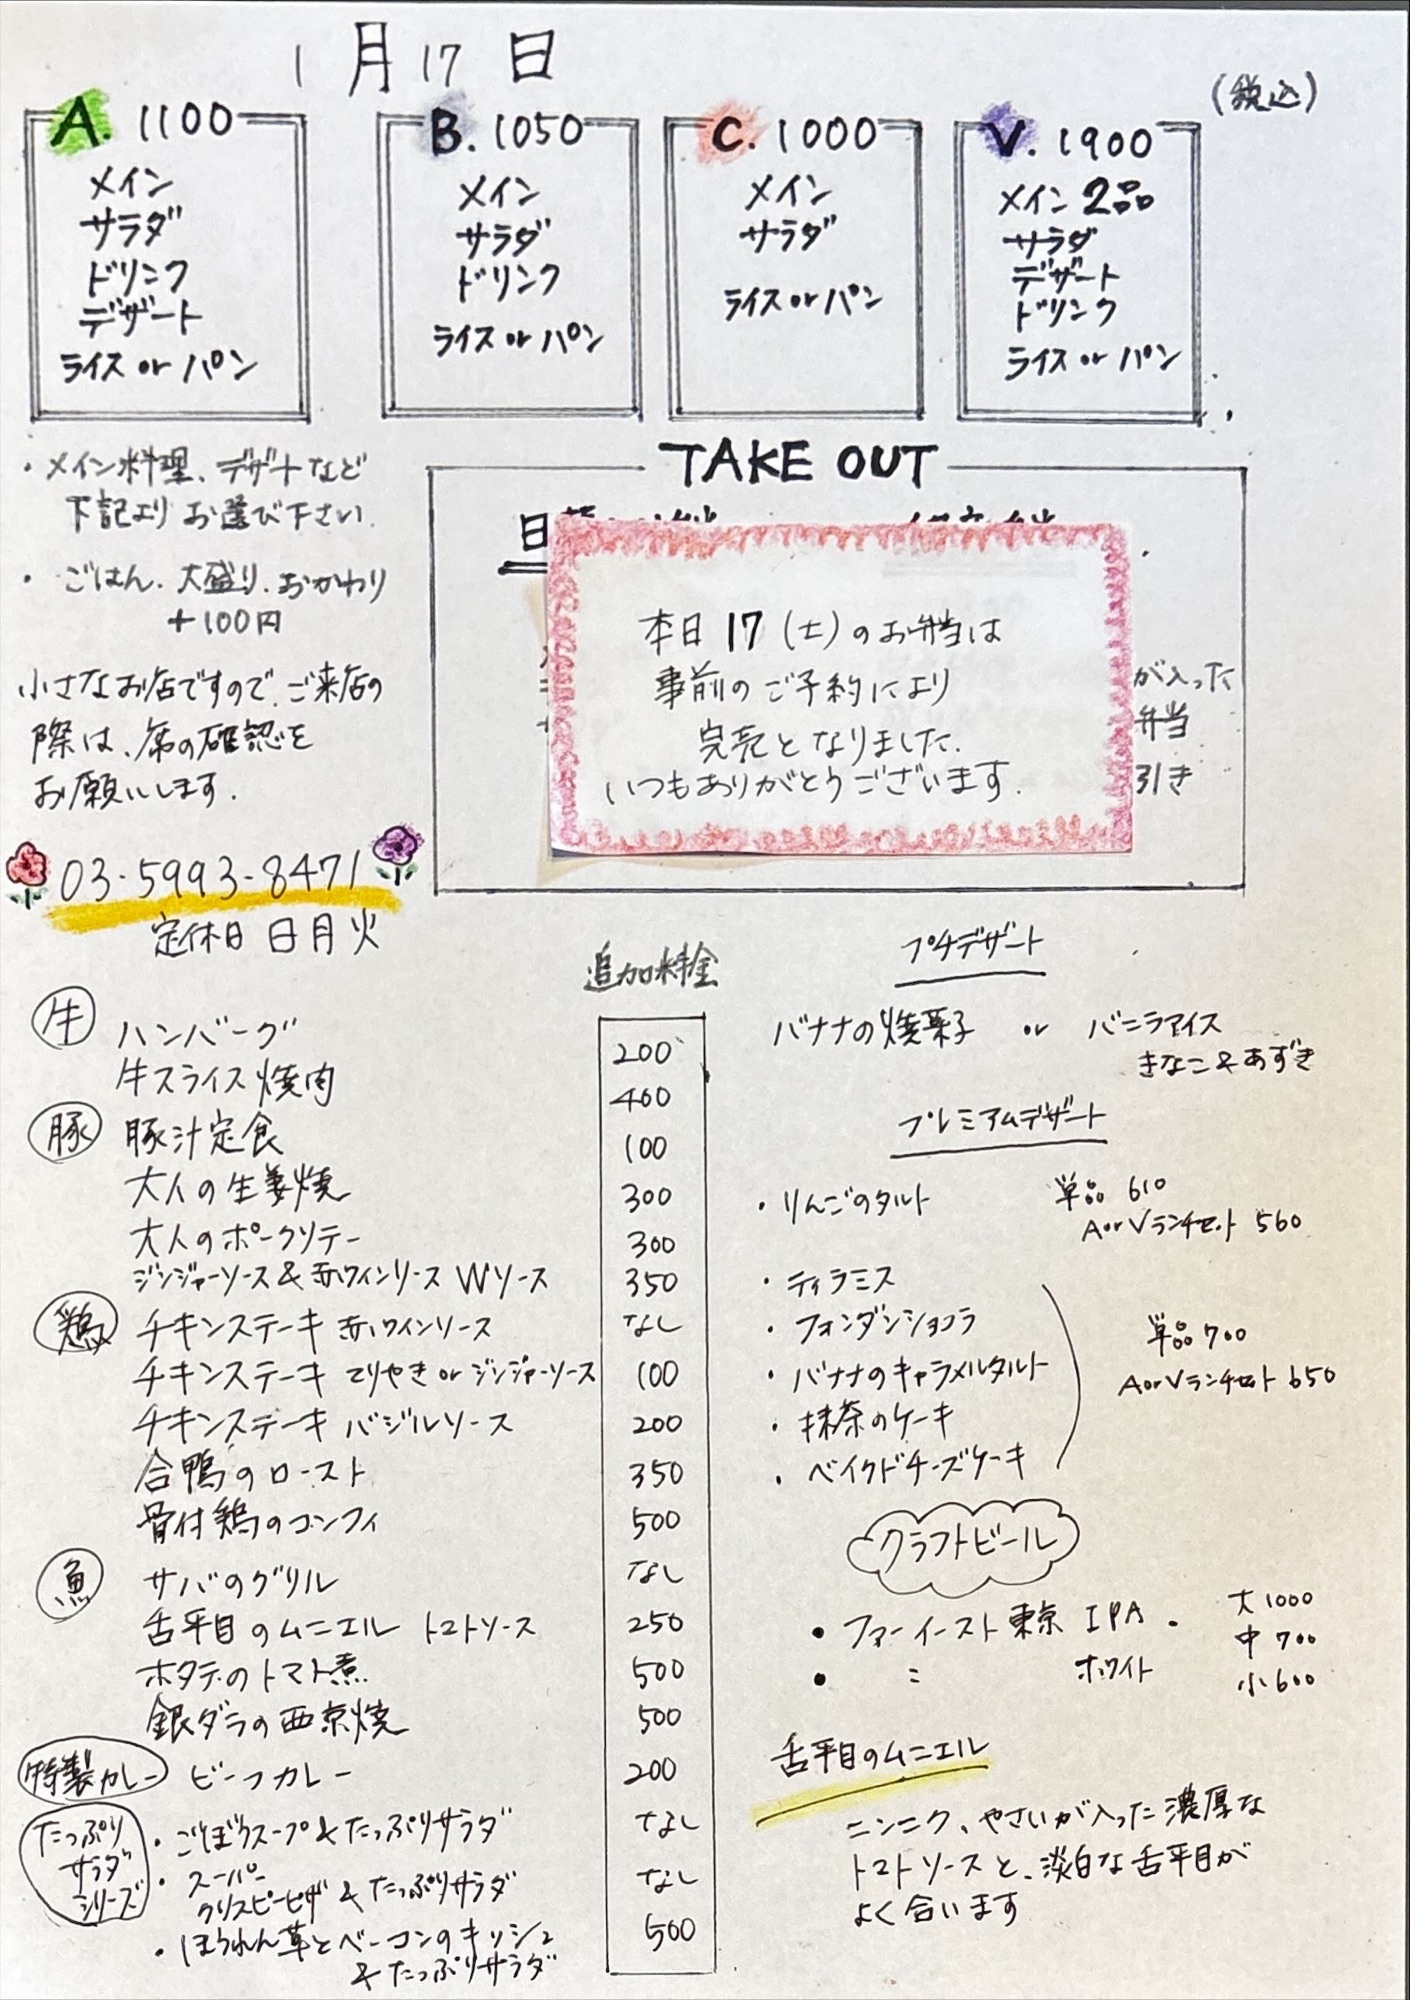 1月17日
(税込)
A. 1100
メイン
サラダ
ドリンク
デザート
ライス or パン
B. 1050
メイン
サラダ
ドリンク
ライス or パン
C. 1000
メイン
サラダ
ライス or パン
V. 1900
メイン 2品
サラダ
デザート
ドリンク
ライス or パン
・メイン料理、デザートなど
下記よりお選び下さい.
・ごはん. 大盛り. おかわり
+100円
小さなお店ですので、ご来店の
際は、席の確認を
お願いします.
03-5993-8471
定休日 日月火
TAKE OUT
日
本日 17 (土)のお弁当は
事前のご予約により
完売となりました.
いつもありがとうございます.
が入った
弁当
引き
追加料金
牛
ハンバーグ 200
牛スライス焼肉 400
豚
豚汁定食 100
大人の生姜焼 300
大人のポークソテー 300
ジンジャーソース&赤ワインソース Wソース 350
鶏
チキンステーキ 赤ワインソース なし
チキンステーキ てりやき or ジンジャーソース 100
チキンステーキ バジルソース 200
合鴨のロースト 350
骨付鶏のコンフィ 500
魚
サバのグリル なし
舌平目のムニエル トマトソース 250
ホタテのトマト煮 500
銀ダラの西京焼 500
特製カレー ビーフカレー 200
たっぷり
サラダ
シリーズ
・ごぼうスープ&たっぷりサラダ なし
・スーパー
クリスピーピザ&たっぷりサラダ なし
・ほうれん草とベーコンのキッシュ 500
&たっぷりサラダ
プチデザート
バナナの焼菓子 or バニラアイス
きなこ&あずき
プレミアムデザート
・りんごのタルト 単品 610
AorVランチセット 560
・ティラミス
・フォンダンショコラ
・バナナのキャラメルタルト
・抹茶のケーキ
・ベイクドチーズケーキ
単品 700
AorVランチセット 650
クラフトビール
・ファーイースト東京 IPA.
・〃 ホワイト
大 1000
中 700
小 600
舌平目のムニエル
ニンニク、やさいが入った濃厚な
トマトソースと、淡白な舌平目が
よく合います